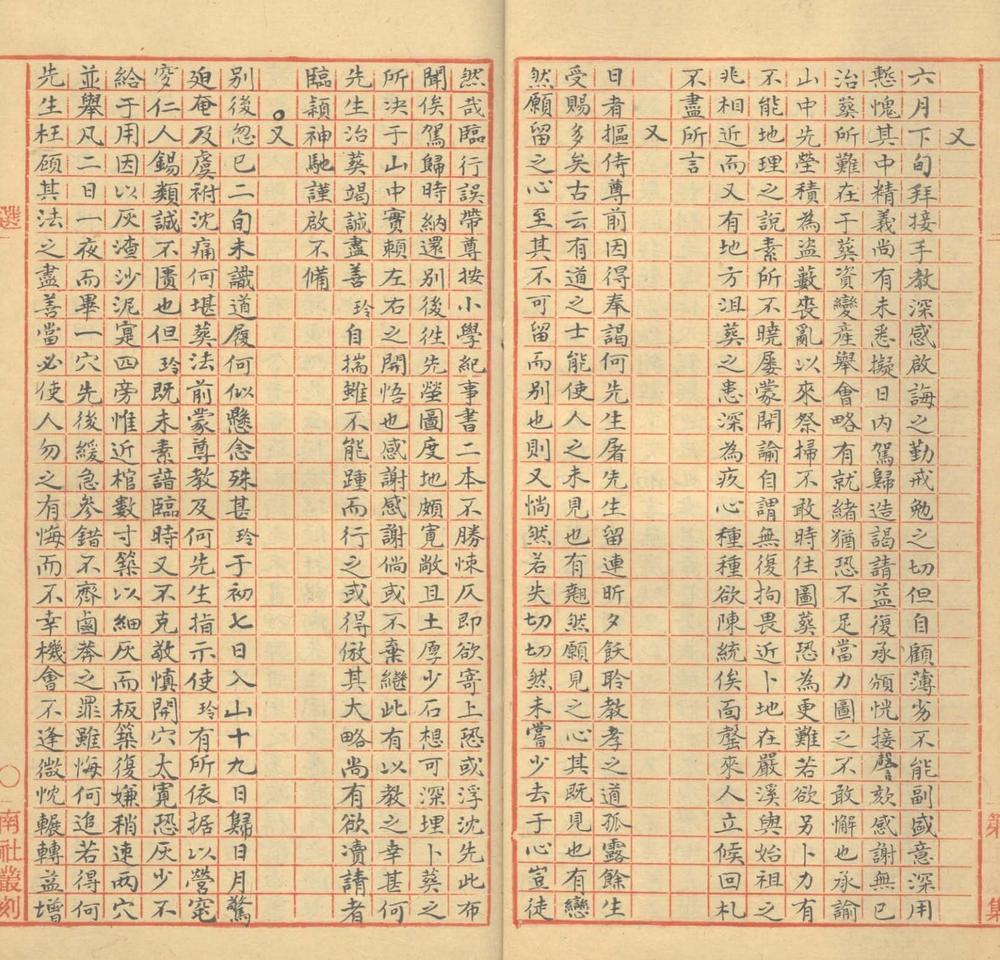 又
六月下旬拜接手教深感啟誨之勤戒勉之切但自顧薄劣不能副盛意深用
慙愧其中精義尚有未悉擬日內駕歸造謁請益復承頒恍接謦欬感謝無已
治葬所難在于葬資變產舉會略有就緒猶恐不足當力圖之不敢懈也承諭
山中先塋積為盜藪喪亂以來祭掃不敢時往圖葬恐為更難若欲另卜力有
不能地理之說素所不曉屡蒙開諭自謂無復拘畏近卜地在嚴溪與始祖之
兆相近而又有地方沮葬之患深為疚心種種欲陳統俟面罄來人立候回札
不盡所言
又
日者摳侍尊前因得奉謁何先生屠先生留連昕夕飫聆教孝之道孤露餘生
受賜多矣古云有道之士能使人之未見也有翹然願見之心其既見也有戀
然願留之心至其不可留而別也則又惝然若失切切然未嘗少去于心豈徒
然哉臨行誤帶尊按小學紀事書二本不勝悚仄即欲寄上恐或浮沈先此布
聞俟駕歸時納還別後徃先塋圖度地頗寬敞且土厚少石想可深埋卜葬之
所决于山中實頼左右之開悟也感謝感謝倘或不棄繼此有以教之幸甚何
先生治葬竭誠盡善玲自揣雖不能踵而行之或得倣其大略尚有欲凟請者
臨穎神馳謹啟不備
又
別後忽已二旬未識道履何似懸念殊甚玲于初七日入山十九日歸日月驚
廹奄及虞祔沈痛何堪葬法前蒙尊教及何先生指示使玲有所依据以營窀
穸仁人錫類誠不匱也但玲既未素諳臨時又不克敬慎開穴太寬恐灰少不
給于用因以灰渣沙泥寔四旁惟近棺數寸築以細灰而板築復嫌稍速兩穴
並舉凡二日一夜而畢一穴先後緩急參錯不齊鹵莽之罪雖悔何追若得何
先生枉顧其法之盡善當必使人勿之有悔而不幸機會不逢微忱輾轉益增
選
南社叢刻
第
集